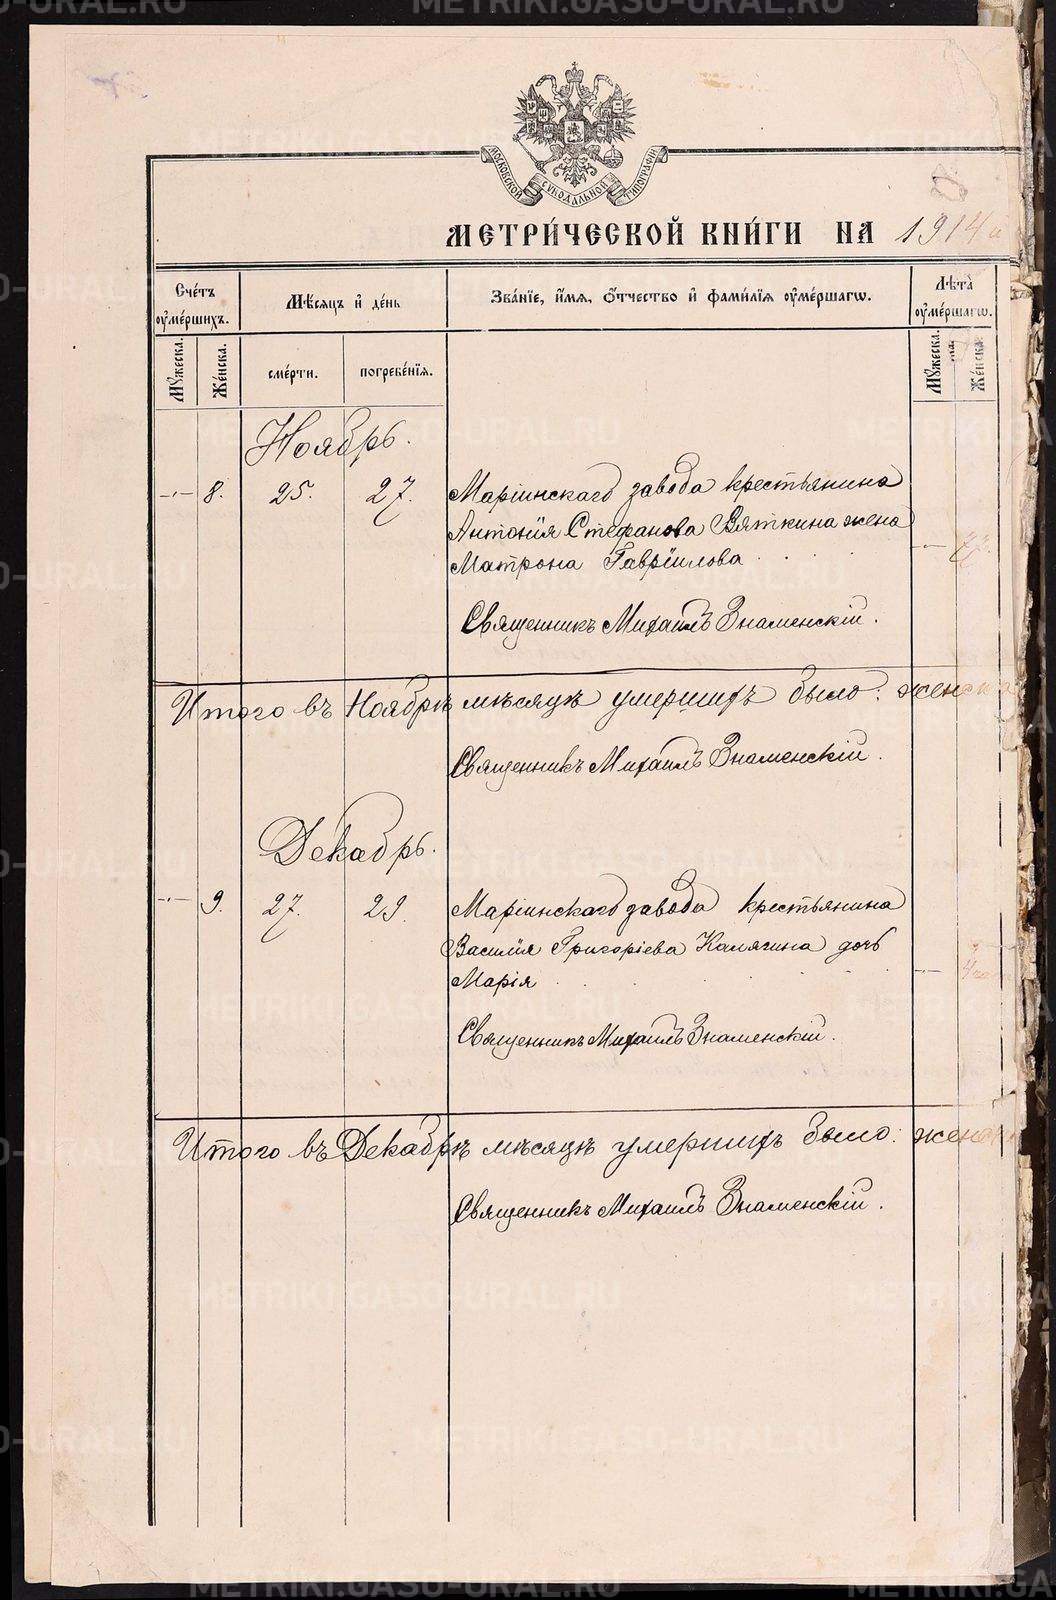 МОСКОВСКОЙ СѴНОДАЛЬНОЙ ТИПОГРАФІИ
МЕТРИ́ЧЕСКОЙ КНИ́ГИ НА 1914
Сче́тъ ᲂу҆ме́ршихъ.
Мѣ́сяцъ и҆ де́нь
Зва́нїе, и҆́мѧ, ѻ҆́тчество и҆ фами́лїѧ ᲂу҆ме́ршагѡ.
Лѣ́та ᲂу҆ме́ршагѡ.
Мꙋ́жеска.
Же́нска.
сме́рти.
погребе́нїѧ.
Мꙋ́жеска.
Же́нска.
Ноябрь.
— 8. 25. 27. Маріинскаго завода крестьянина
Антонія Стефанова Вяткина жена
Матрона Гавріилова
Священникъ Михаилъ Знаменскій.
Итого въ Ноябрѣ мѣсяцѣ умершихъ было: женска
Священникъ Михаилъ Знаменскій.
Декабрь.
— 9. 27. 29. Маріинскаго завода крестьянина
Василія Григоріева Калягина дочь
Марія
Священникъ Михаилъ Знаменскій.
Итого въ Декабрѣ мѣсяцѣ умершихъ было: женск
Священникъ Михаилъ Знаменскій.
METRIKI.GASO-URAL.RU